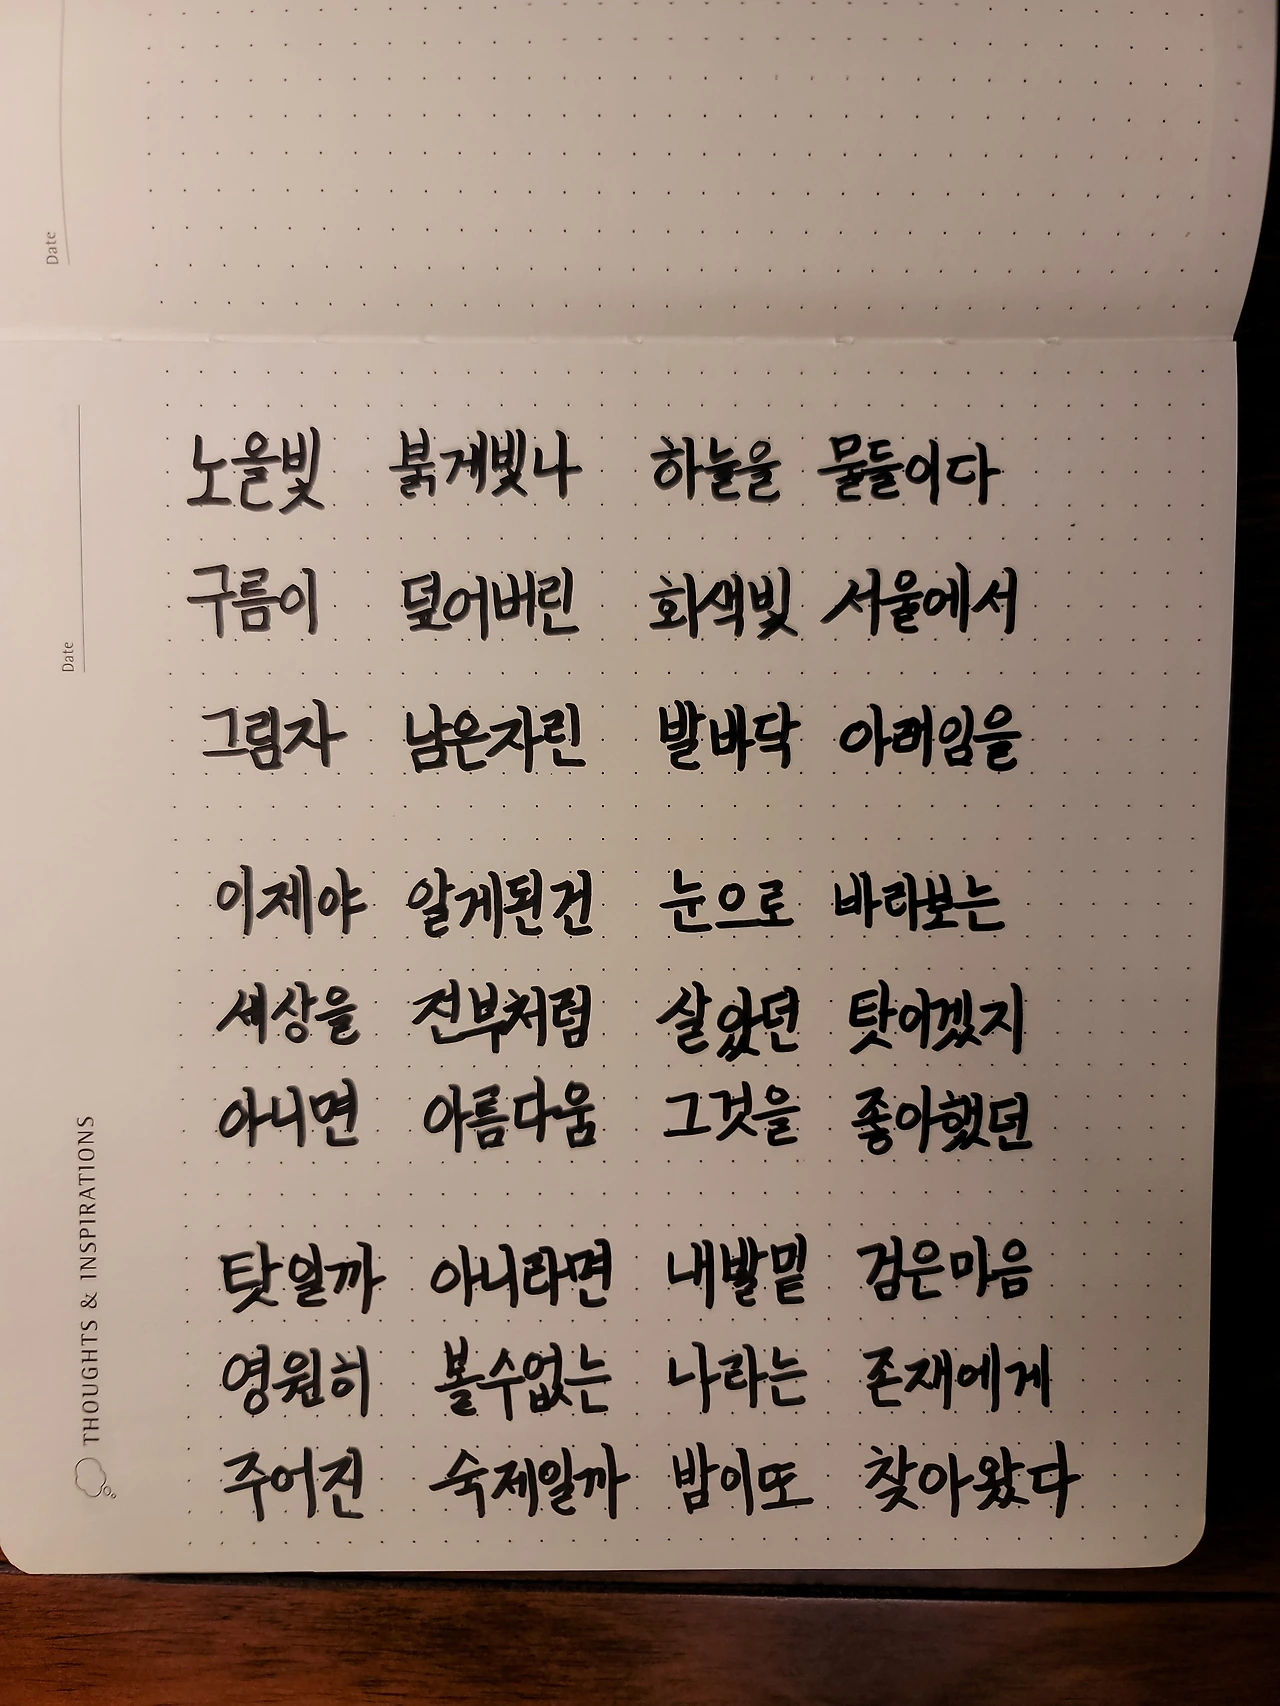 Date
노을빛 붉게빛나 하늘을 물들이다
구름이 덮어버린 회색빛 서울에서
그림자 남은자린 발바닥 아래임을
이제야 알게된건 눈으로 바라보는
세상을 전부처럼 살았던 탓이겠지
아니면 아름다움 그것을 좋아했던
탓일까 아니라면 내발밑 검은마음
영원히 볼수없는 나라는 존재에게
주어진 숙제일까 밤이또 찾아왔다
Date
THOUGHTS & INSPIRATIONS